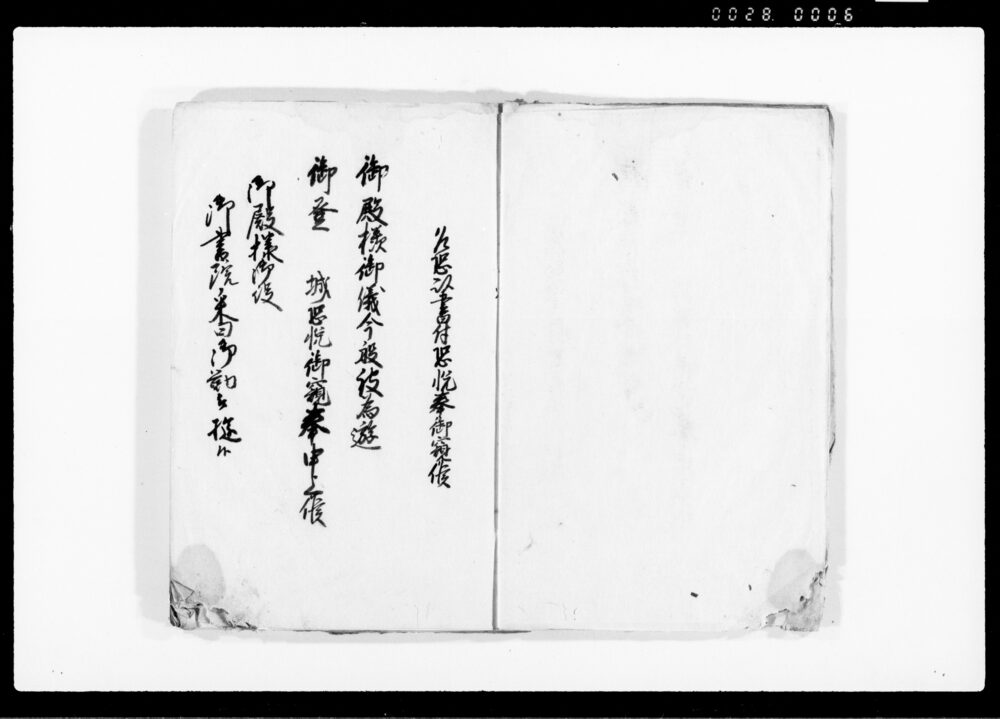 0028 0006
乍恐以書付恐悦奉御窺候
御殿様御儀今般被為遊
御登 城恐悦御窺奉申上候
御殿様御段
御書院